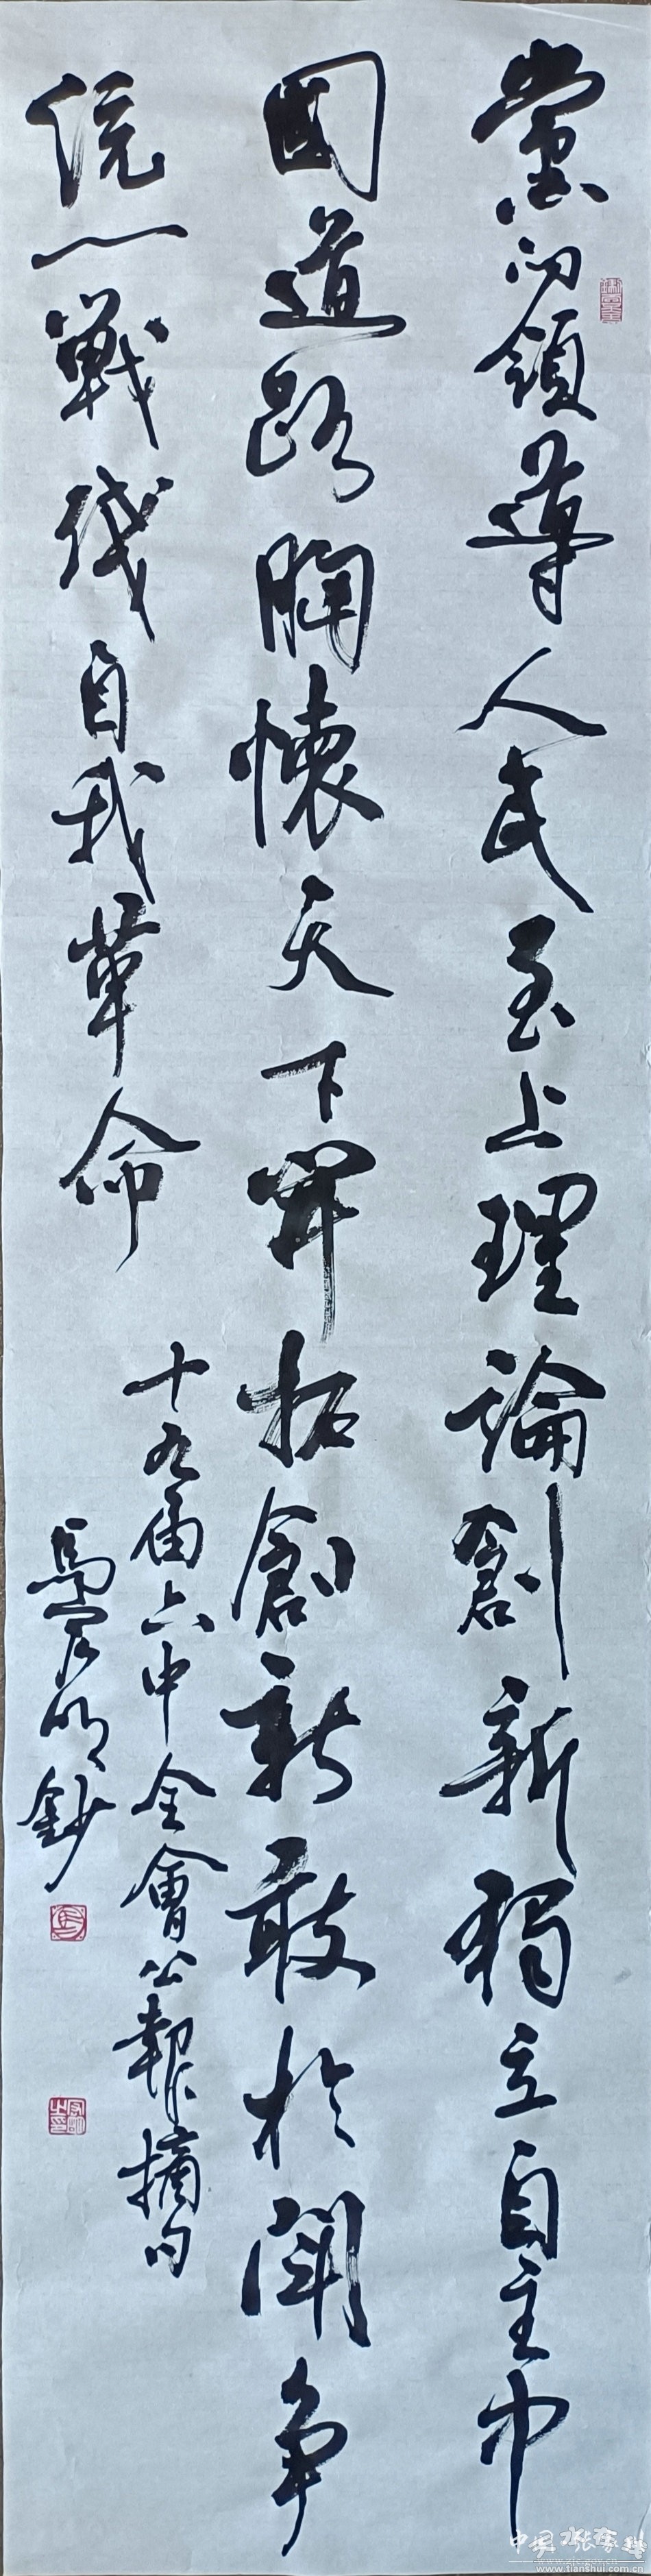 黨的領導人民至上理論創新獨立自主中
國道路胸懷天下開拓創新敢於鬥爭
統一戰线自我革命
十九届六中全會公報摘句
鈔
www.tianshui.com.cn